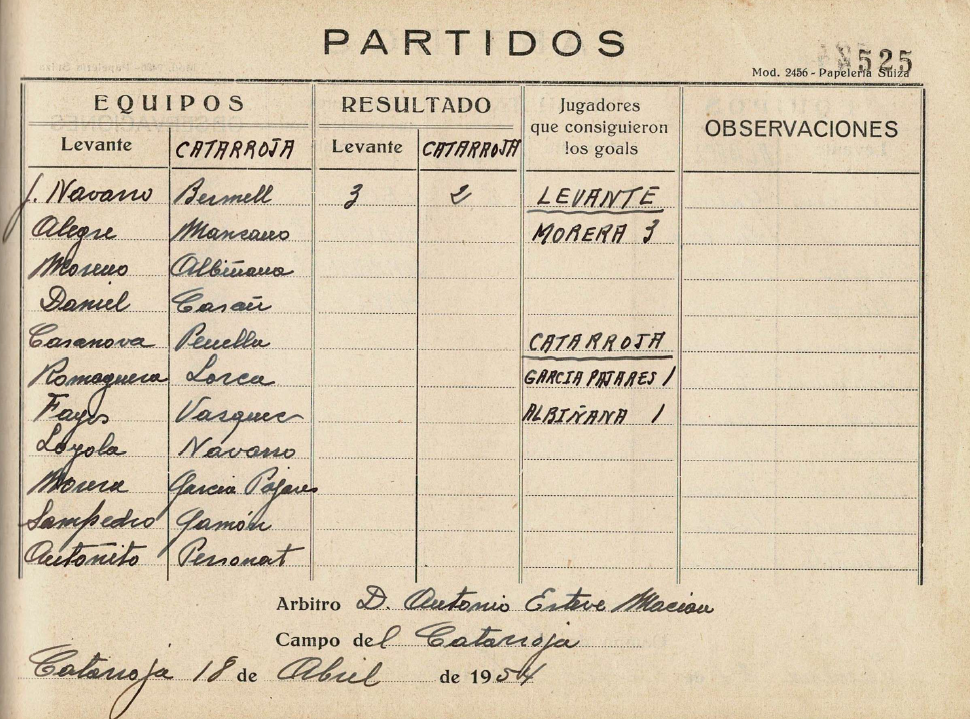 PARTIDOS
525
Mod. 2456 - Papelería Suiza
EQUIPOS RESULTADO Jugadores que consiguieron los goals OBSERVACIONES
Levante CATARROJA Levante CATARROJA
J. Navarro Bermell 3 2 LEVANTE
Alegre Manzano MORERA 3
Moreno Albiñana
Daniel Casañ
Casanova Penella CATARROJA
Romaguera Lorca GARCIA PAJARES 1
Fayos Vasquez ALBIÑANA 1
Loyola Navarro
Morera Garcia Pajares
Sampedro Gamón
Antoñito Personat
Arbitro D. Antonio Esteve Macian
Campo del Catarroja
Catarroja 18 de Abril de 1954